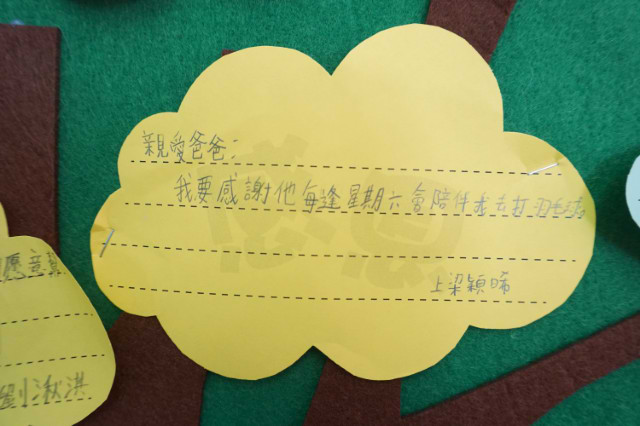 親愛爸爸：
我要感謝他每逢星期六會陪伴我去打羽毛球
上梁穎晞
感恩
願意
劉湫淇